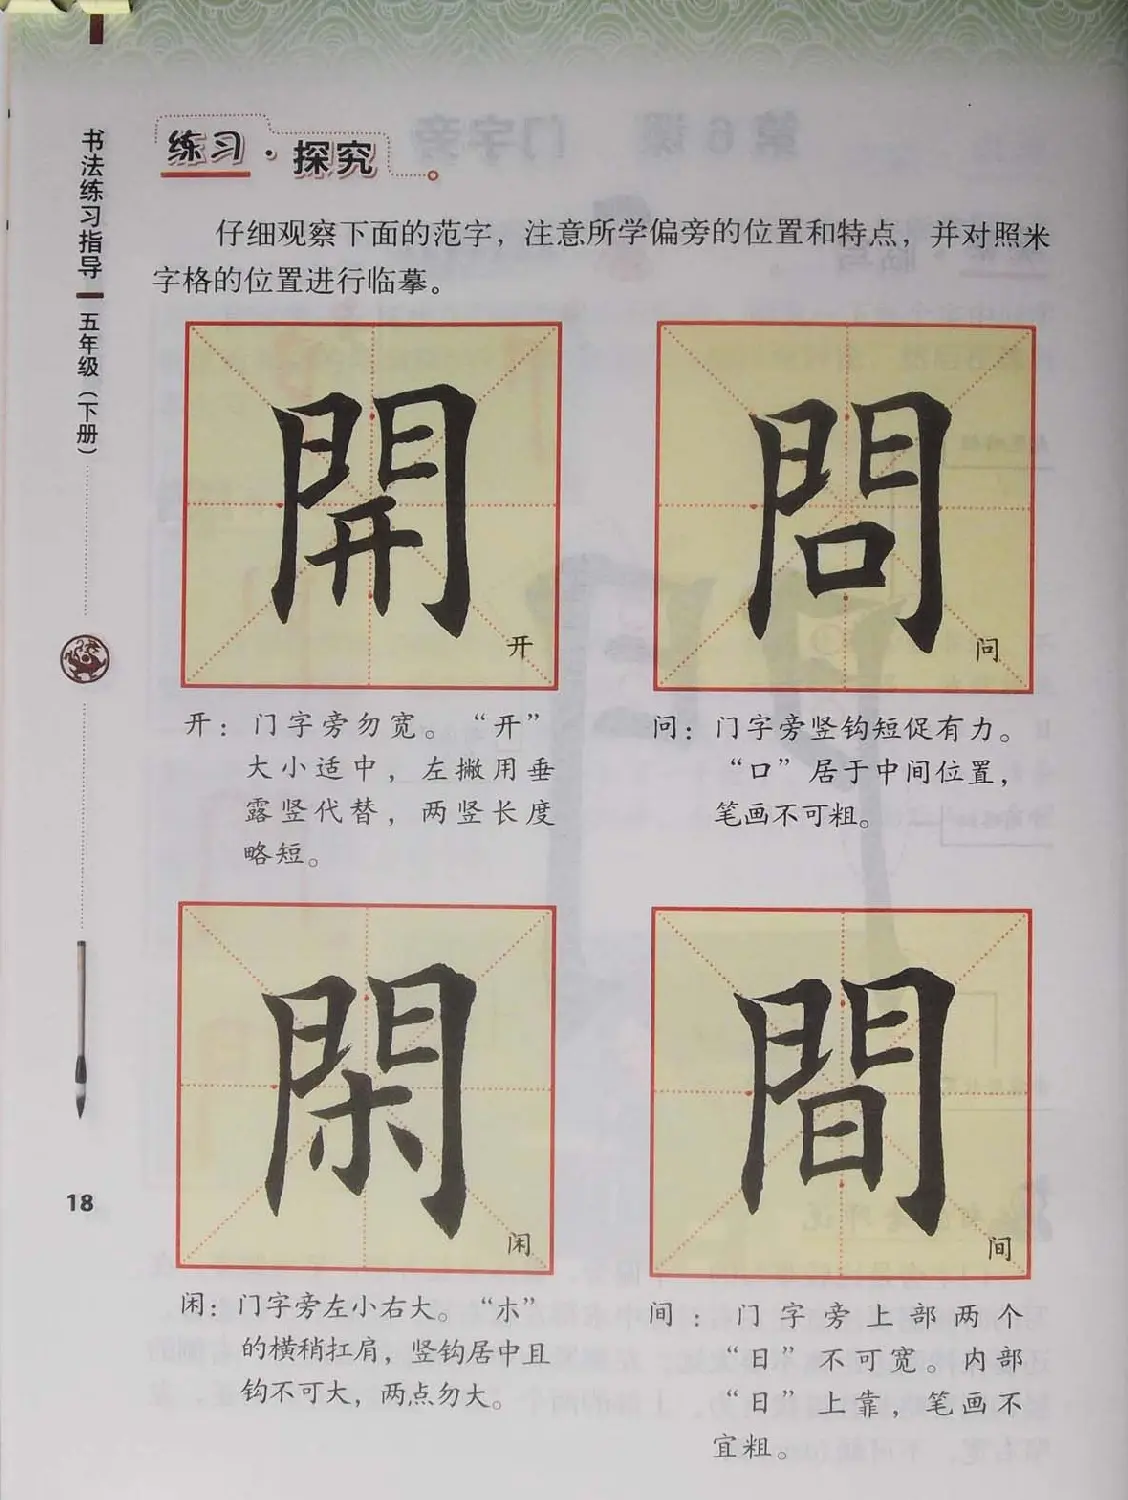 书法练习指导
五年级（下册）
18
练习·探究
仔细观察下面的范字，注意所学偏旁的位置和特点，并对照米
字格的位置进行临摹。
開
开
問
问
开：门字旁勿宽。“开”
大小适中，左撇用垂
露竖代替，两竖长度
略短。
问：门字旁竖钩短促有力。
“口”居于中间位置，
笔画不可粗。
閑
闲
間
间
闲：门字旁左小右大。“朩”
的横稍扛肩，竖钩居中且
钩不可大，两点勿大。
间：门字旁上部两个
“日”不可宽。内部
“日”上靠，笔画不
宜粗。